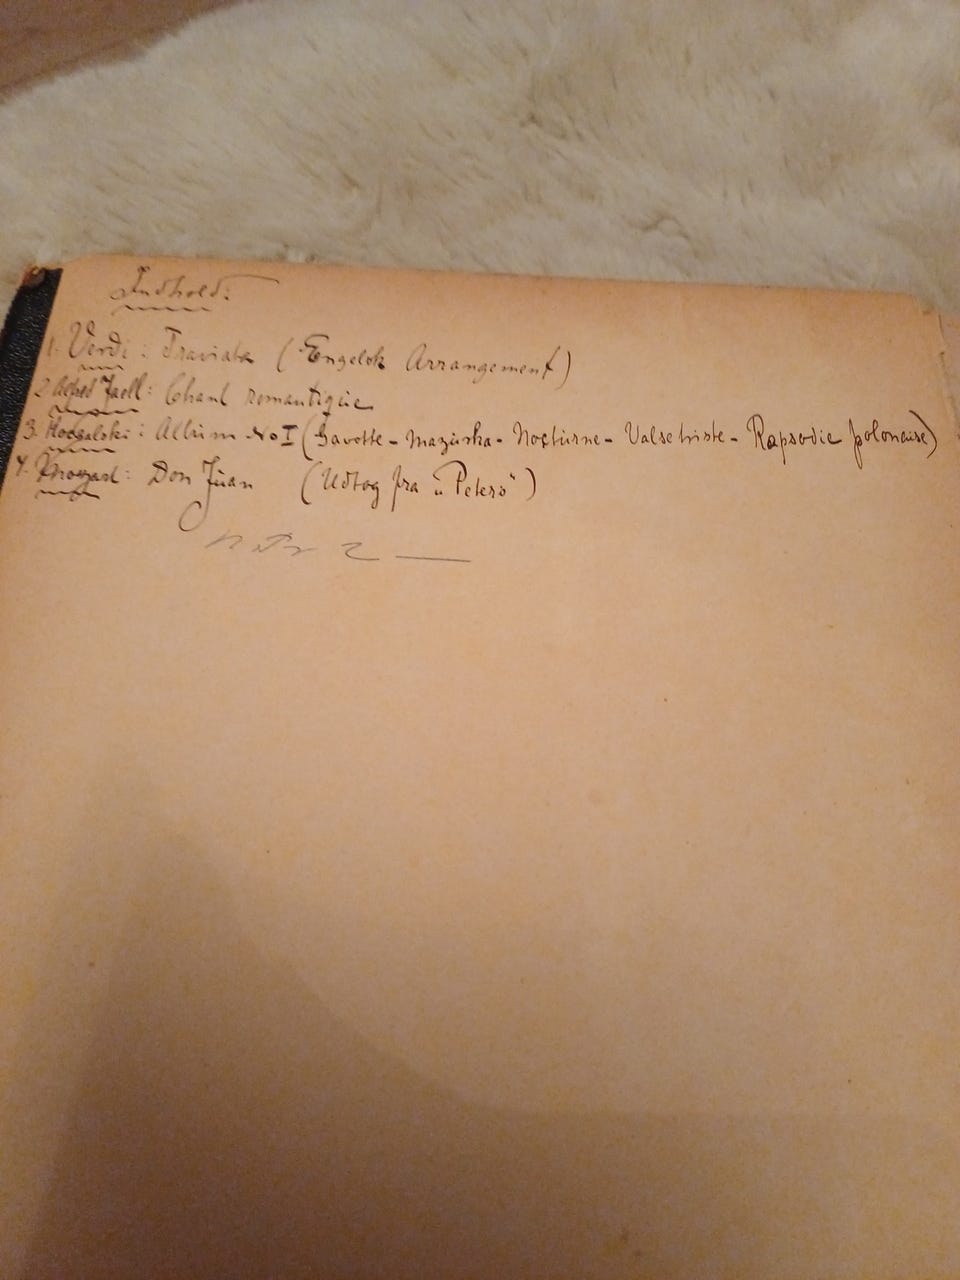 Indhold:
1. Verdi: Traviata (Engelsk Arrangement)
2 Alfred Jaell: Chant romantique
3. Koczalski: Album No I (Gavotte - Mazurka - Nocturne - Valse triste - Rapsodie polonaise)
4. Mozart: Don Juan (Udtog fra "Peters")